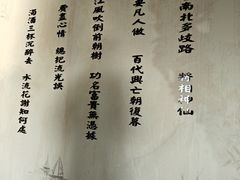 南北多歧路 將相神仙
要凡人做 百代興亡朝復暮
江風吹倒前朝樹 功名富貴無憑據
費盡心情 總把流光誤
濁酒三杯沉醉去 水流花謝知何處